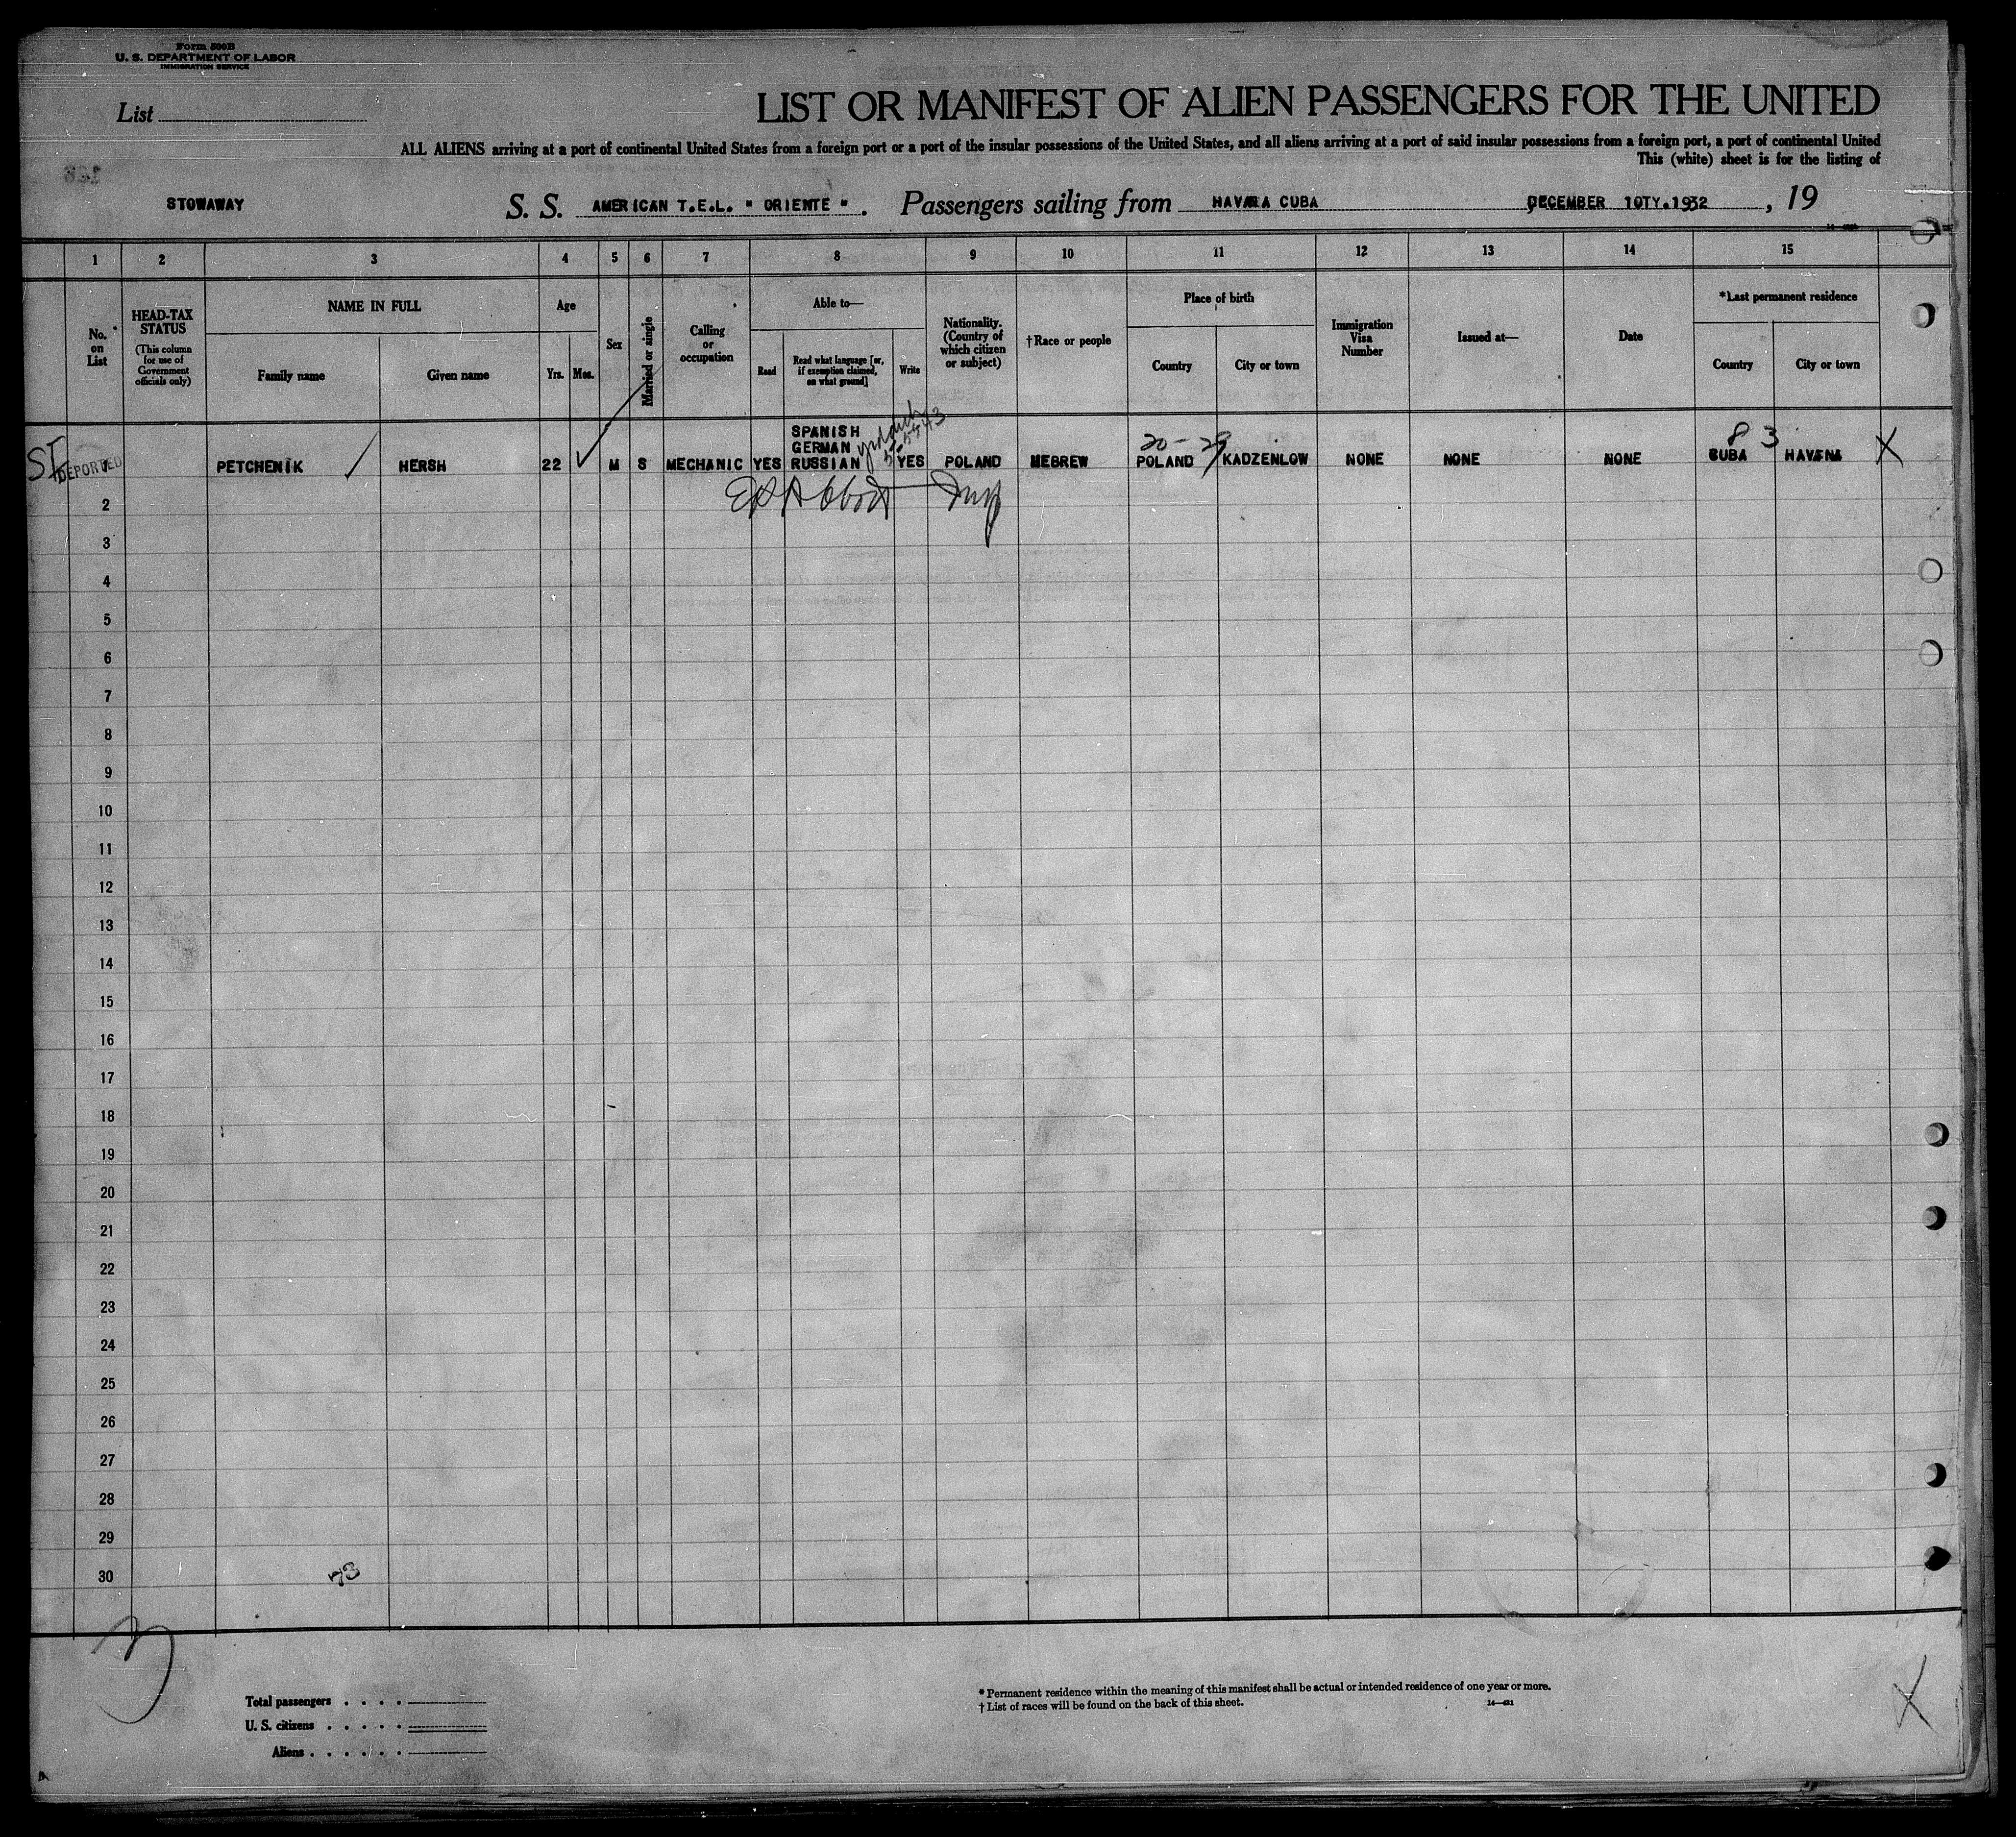 Form 500B
U. S. DEPARTMENT OF LABOR
IMMIGRATION SERVICE
List
LIST OR MANIFEST OF ALIEN PASSENGERS FOR THE UNITED
ALL ALIENS arriving at a port of continental United States from a foreign port or a port of the insular possessions of the United States, and all aliens arriving at a port of said insular possessions from a foreign port, a port of continental United
This (white) sheet is for the listing of
STOWAWAY
S. S. AMERICAN T.E.L. " ORIENTE ". Passengers sailing from HAVANA CUBA DECEMBER 10TY.1932, 19
1 2 3 4 5 6 7 8 9 10 11 12 13 14 15
No. on List
HEAD-TAX STATUS
(This column for use of Government officials only)
NAME IN FULL
Family name
Given name
Age
Yrs. Mos.
Sex
Married or single
Calling or occupation
Able to—
Read
Read what language [or, if exemption claimed, on what ground]
Write
Nationality. (Country of which citizen or subject)
†Race or people
Place of birth
Country
City or town
Immigration Visa Number
Issued at—
Date
*Last permanent residence
Country
City or town
SPANISH
GERMAN
20-29
8 3
DEPORTED PETCHENIK HERSH 22 M S MECHANIC YES RUSSIAN YES POLAND HEBREW POLAND KADZENLOW NONE NONE NONE CUBA HAVANA X
2
3
4
5
6
7
8
9
10
11
12
13
14
15
16
17
18
19
20
21
22
23
24
25
26
27
28
29
30
73
3
Total passengers
U. S. citizens
Aliens
* Permanent residence within the meaning of this manifest shall be actual or intended residence of one year or more.
† List of races will be found on the back of this sheet.
X